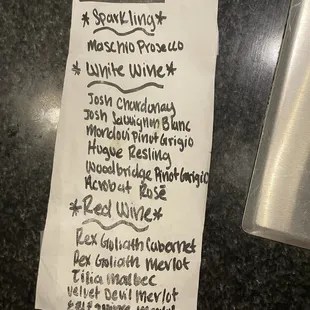 *Sparkling*
Maschio Prosecco
*White Wine*
Josh Chardonay
Josh Sauvignon Blanc
Mondovi Pinot Grigio
Hugue Resling
Woodbridge Pinot Grigio
Acrobat Rosé
*Red Wine*
Rex Goliath Cabernet
Rex Goliath Merlot
Tilia Malbec
Velvet Devil Merlot